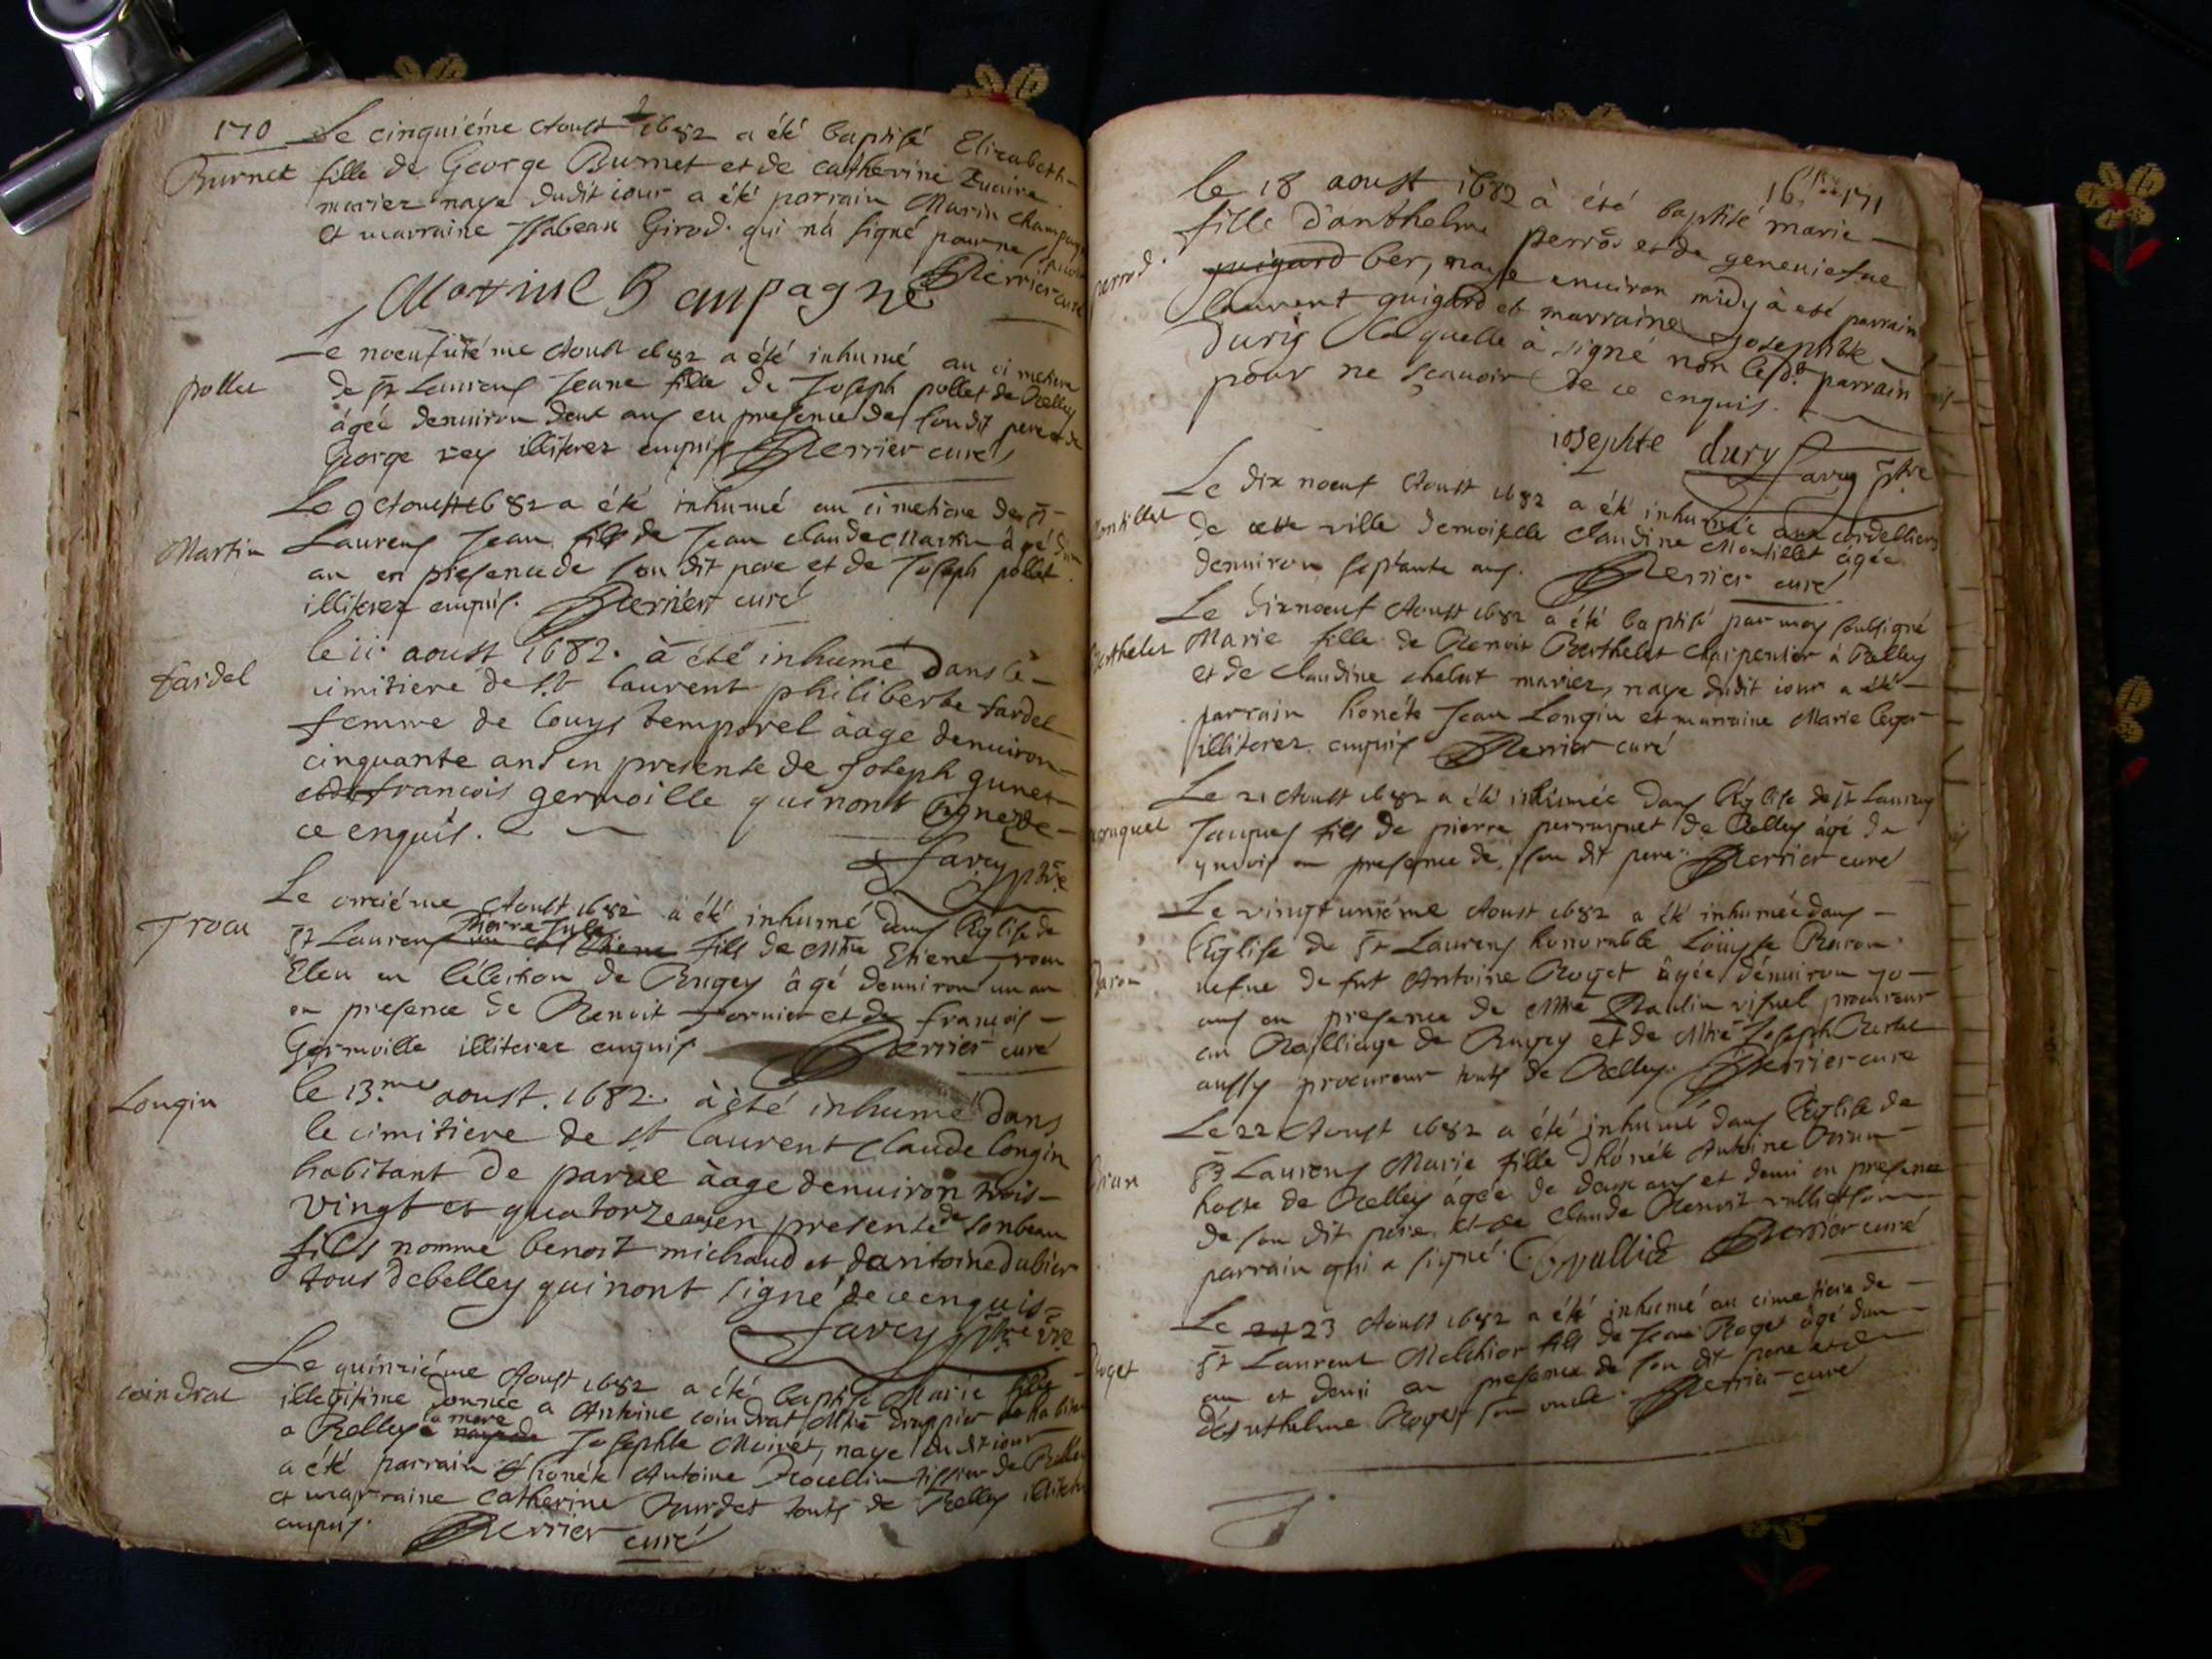 170
Le cinquiéme Aoust 1682 a été baptisé Elizabeth
Burnet
fille de George Burnet et de Catherine
mariez naye dudit iour a été parrain Marin
et marraine Isabeau Girod. qui na signé pour ne
Perrier curé
Le Aoust 1682 a été inhumé au cimetiere
pollet
de st Laurens Jeane fille de Joseph pollet de Belley
âgée denuiron deux ans en presence de son dit pere et de
George rey illiterez enquis Perrier curé
Le 9 Aoust 1682 a été inhumé au cimetiere de st
Martin
Laurens Jean fils de Jean Claude Martin âgé d'un
an en presence de son dit pere et de Joseph pollet
illiterez enquis. Perrier curé
le 11 aoust 1682. à été inhumé dans le
fardel
cimitiere de st laurent philiberte fardel
femme de louys temporel àage denuiron
cinquante ans en presente de Joseph
francois germoille qui nont signe de
ce enquis.
Favey ptre
Le onziéme Aoust 1682 a été inhumé dans l'Eglise de
Trocu
st Laurens fils de Mtre Etiene
Eleu en l'élection de Bugey âgé denuiron un an
en presence de Benoit fornier et de françois
Germoille illiterez enquis Perrier curé
le 13.me aoust. 1682. à été inhumé dans
Longin
le cimitiere de st laurent claude longin
habitant de parue àage denuiron trois
vingt et quatorze ans en presente de son beau
fils nommé benoit michaud et dantoine dubier
tous debelley qui nont signé de ce enquis
Favey ptre
Le quinziéme Aoust 1682 a été baptisé Marie fille
coindrat
illegitime donnée a Antoine coindrat Mtre drappier
a Belley la mere Josephte Moiret, naye dudit iour
a été parrain honéte Antoine tissier de Belley
et marraine Catherine touts de Belley
enquis. Perrier curé
171
le 18 aoust 1682 à été baptisé marie
fille d'anthelme perrod et de geneviefue
perrod.
guigard ber, naye enuiron midy à esté parrain
laurent guigard et marraine josephte
Durij laquelle à signé non parrain
pour ne sçauoir de ce enquis.
iosephte dury
Favey ptre
Le dix noeuf Aoust 1682 a été inhumée aux cordelliers
Montillet
de cette ville demoiselle Claudine Montillet âgée
denuiron septante ans. Perrier curé
Le dixnoeuf Aoust 1682 a été baptisé par moy soubsigné
Berthelet
Marie fille de Benoit Berthelet charpentier à Belley
et de Claudine chebut mariez, naye dudit iour a été
parrain honéte Jean Longin et marraine Marie
illiterez enquis Perrier curé
Le 21 Aoust 1682 a été inhumée dans l'église de st Laurens
perruquet
Jaques fils de pierre perruquet de Belley âgé de
en presence de son dit pere. Perrier curé
Le vingt uniéme Aoust 1682 a été inhumée dans
l'Eglise de st Laurens honorable Loüyse Baron
Baron
uefue de fut Antoine Roget âgée dénuiron 70
ans en presence de Mtre procureur
au Bailliage de Bugey et de Mtre Joseph
aussy procureur touts de Belley. Perrier curé
Le 22 Aoust 1682 a été inhumé dans l'Eglise de
st Laurens Marie fille d'honéte Antoine
hoste de Belley âgée de deux ans et demi en presence
de son dit pere et de Claude Benoit
parrain qui a signé. Perrier curé
Le 24 23 Aoust 1682 a été inhumé au cimetiere de
Roget
st Laurent Melchior fils de Roget âgé d'un
an et demi en presence de son dit pere et
d'Anthelme Roget son oncle. Perrier curé